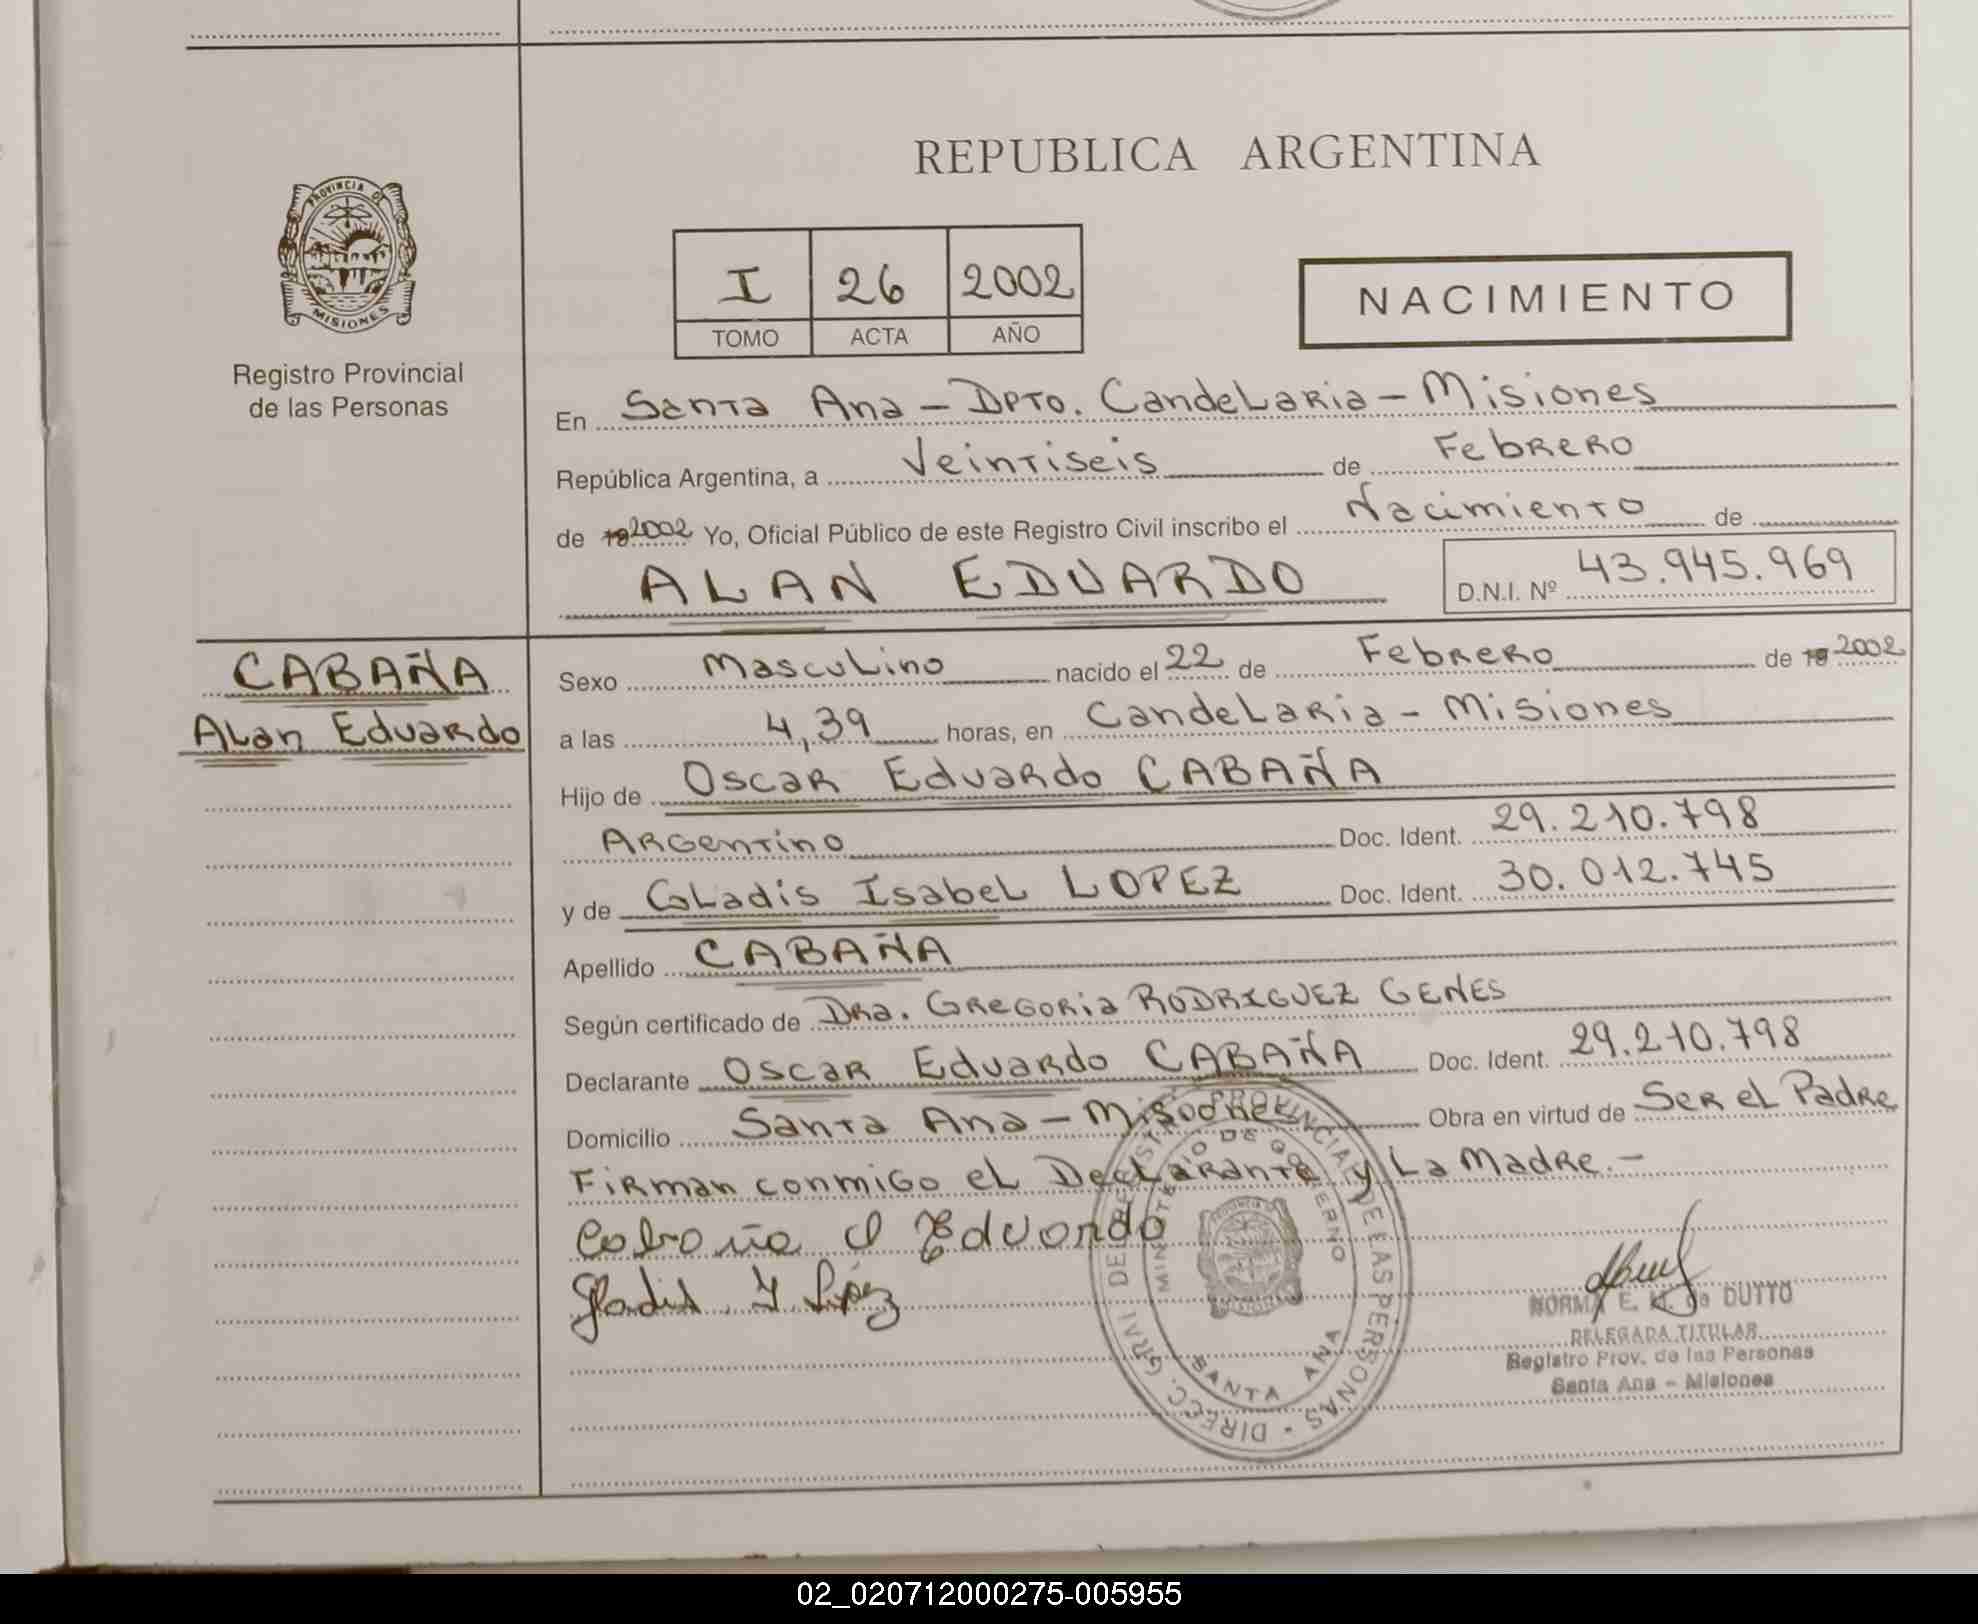 REPUBLICA ARGENTINA
PROVINCIA DE
MISIONES
Registro Provincial
de las Personas
I 26 2002
TOMO ACTA AÑO
NACIMIENTO
En Santa Ana - Dpto. Candelaria - Misiones
República Argentina, a Veintiseis de Febrero
de 19 2002 Yo, Oficial Público de este Registro Civil inscribo el Nacimiento de
ALAN EDUARDO
D.N.I. Nº 43.945.969
CABAÑA
Alan Eduardo
Sexo Masculino nacido el 22 de Febrero de 19 2002
a las 4,39 horas, en Candelaria - Misiones
Hijo de Oscar Eduardo CABAÑA
Argentino Doc. Ident. 29.210.798
y de Gladis Isabel LOPEZ Doc. Ident. 30.012.745
Apellido CABAÑA
Según certificado de Dra. Gregoria RODRIGUEZ GENES
Declarante Oscar Eduardo CABAÑA Doc. Ident. 29.210.798
Domicilio Santa Ana - Misiones Obra en virtud de Ser el Padre
Firman conmigo el Declarante y La Madre.-
Cabaña O Eduardo
Gladis I López
DIREC. GRAL DE REGISTRO PROVINCIAL DE LAS PERSONAS
MINISTERIO DE GOBIERNO
SANTA ANA
NORMA E. M. de DUTTO
DELEGADA TITULAR
Registro Prov. de las Personas
Santa Ana - Misiones
02_020712000275-005955